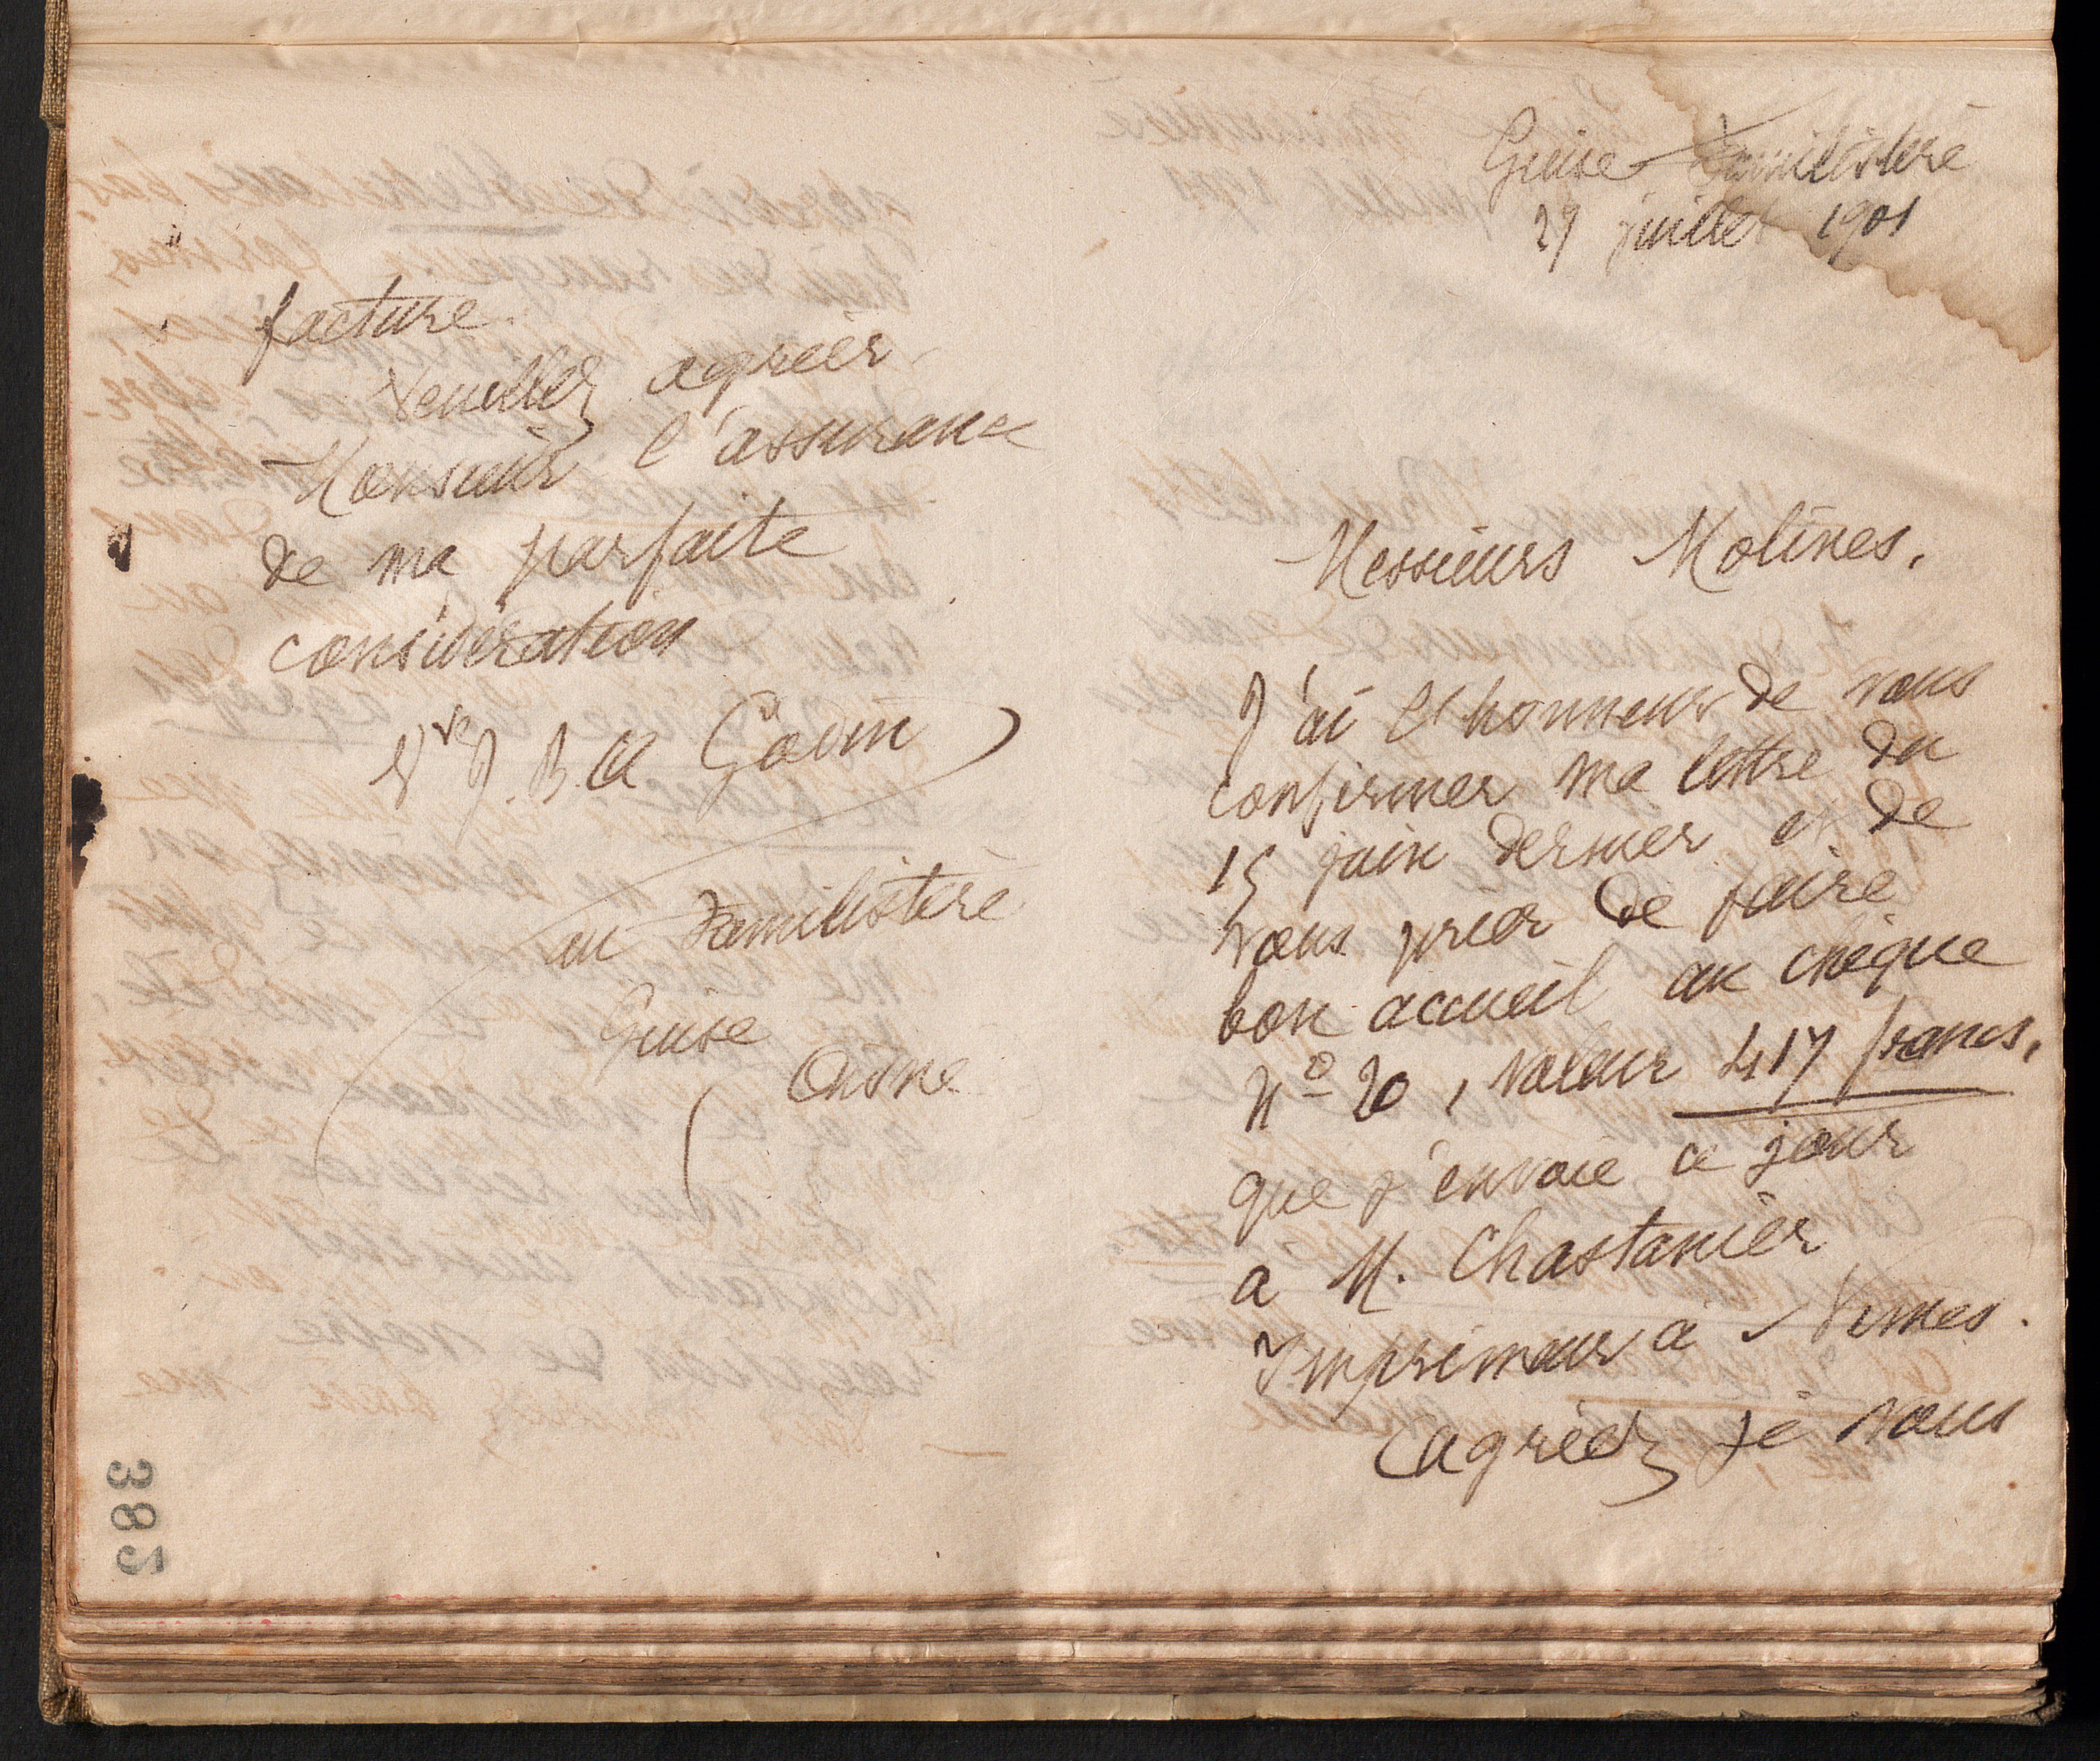 facture.
Veuillez agréer
Monsieur l'assurance
de ma parfaite
considération
Vve J. B. A. Godin
au Familistère
Guise
Aisne
385
Guise Familistère
29 juillet 1901
Messieurs Molines,
J'ai l'honneur de vous
confirmer ma lettre du
15 juin dernier et de
vous prier de faire
bon accueil au chèque
No 20, valeur 417 francs,
que j'envoie ce jour
a M. Chastanier
Imprimeur à Nimes.
Agréez je vous